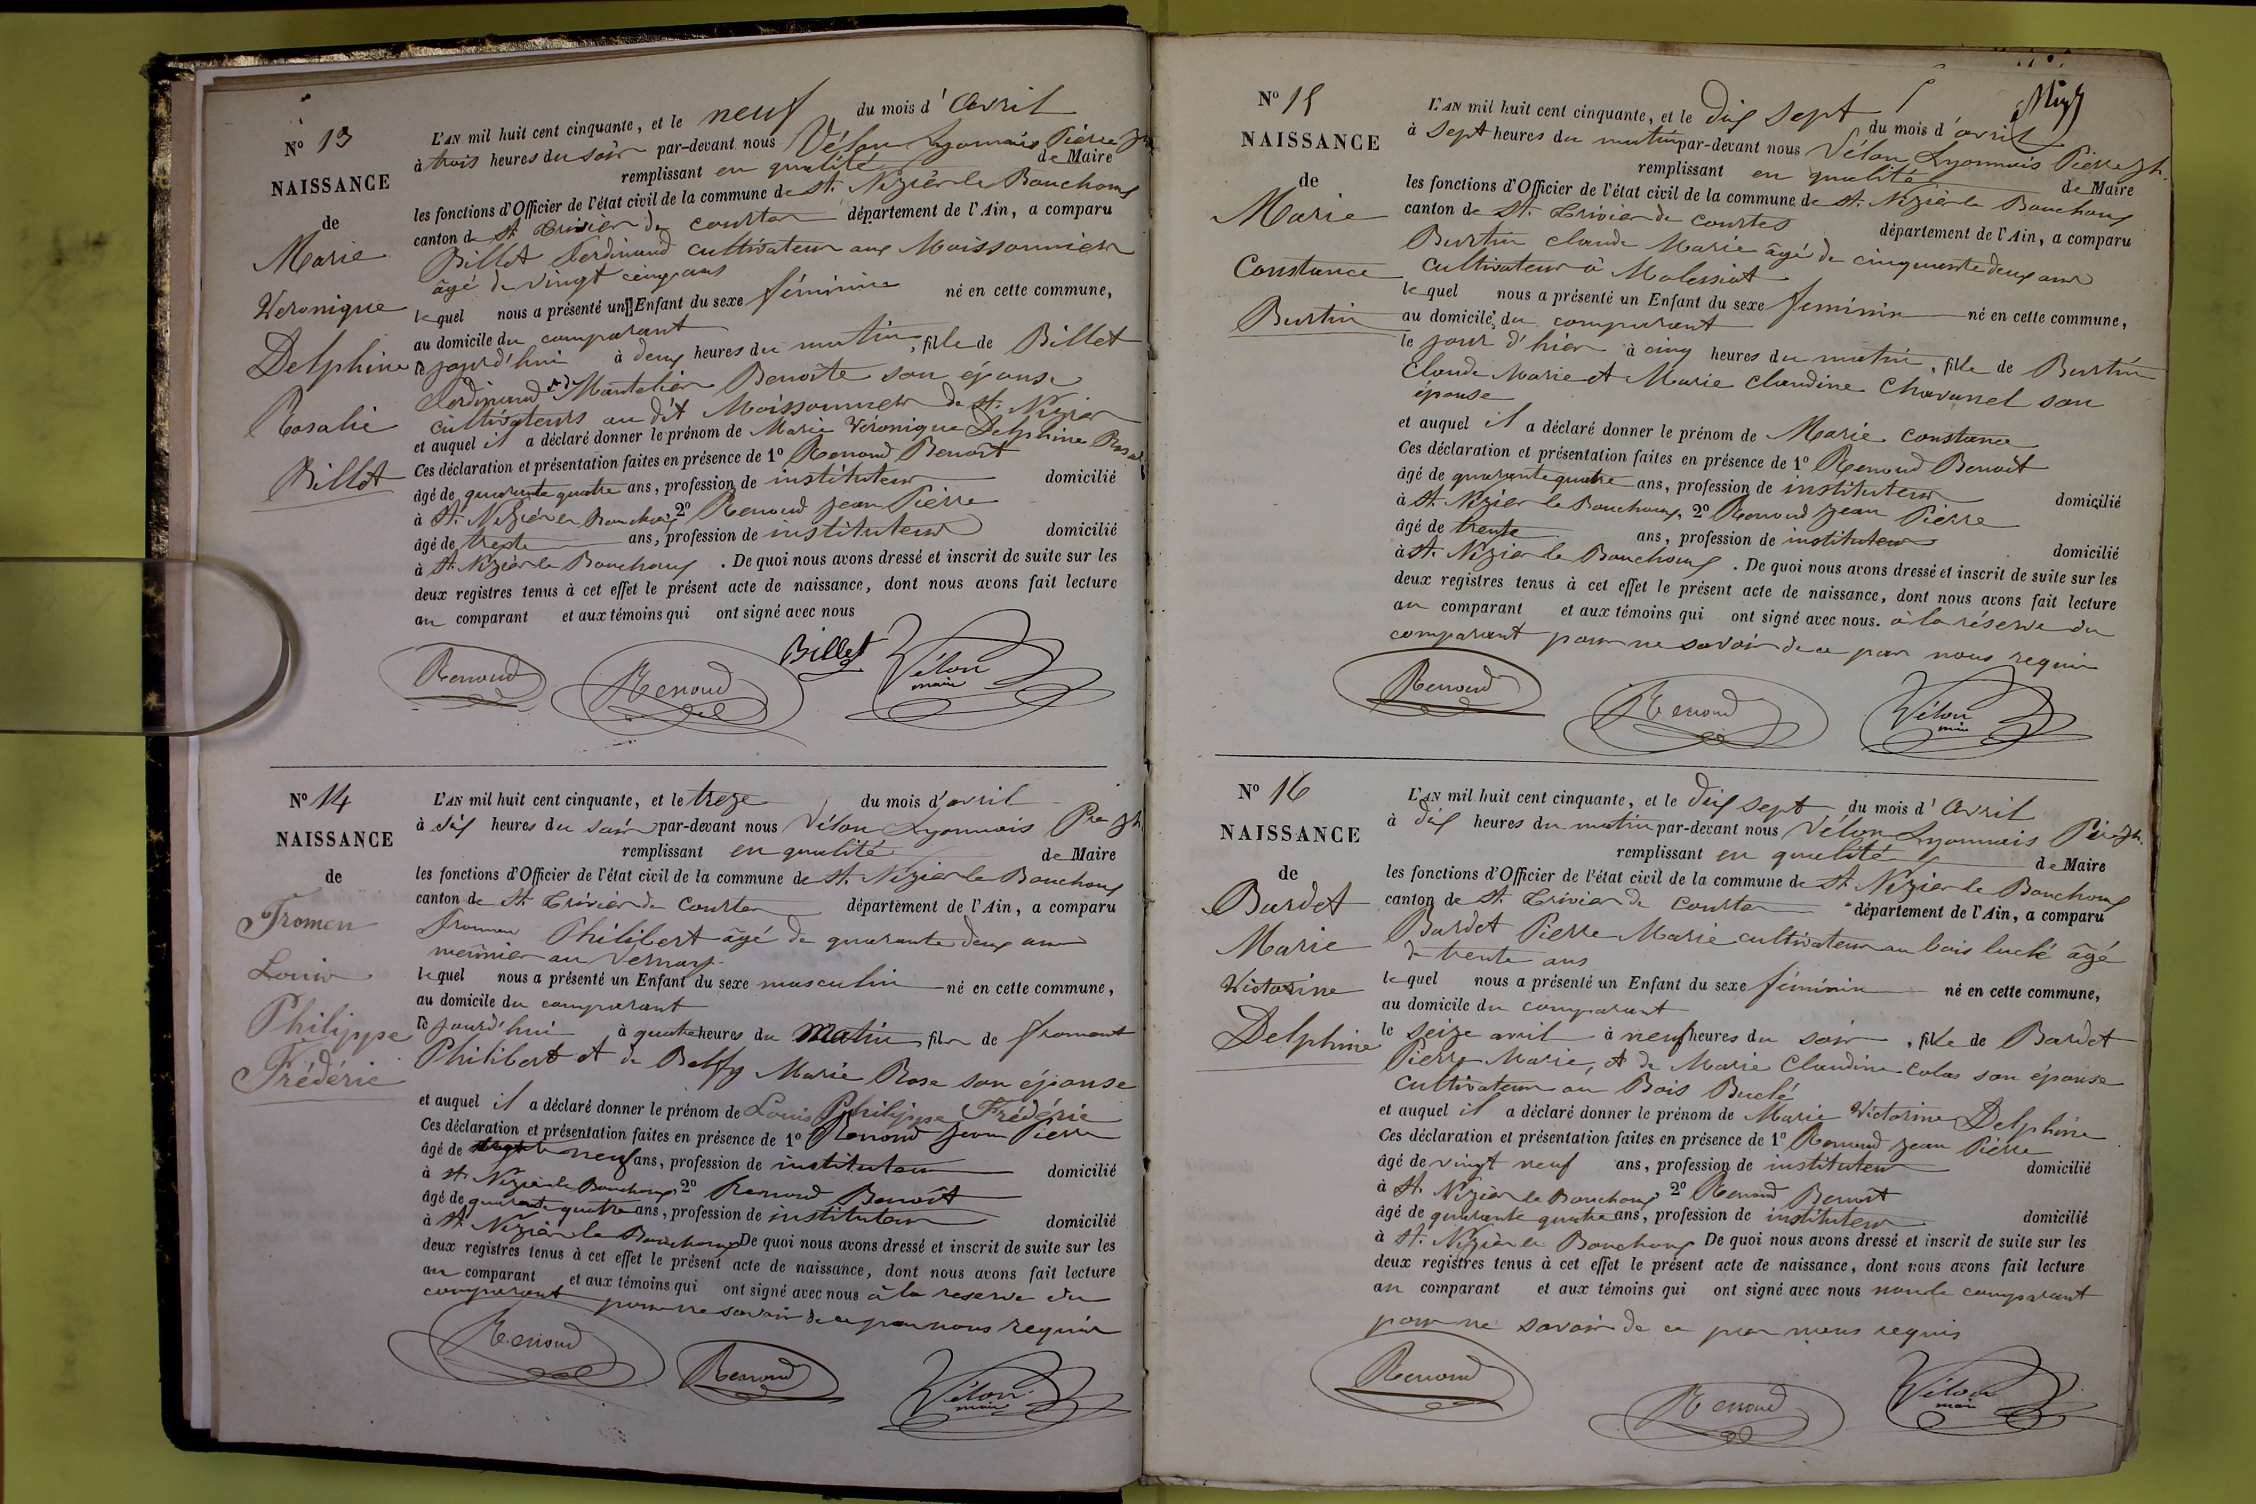 N° 13
NAISSANCE
de
Marie
Veronique
Delphine
Rosalie
Billet
L'AN mil huit cent cinquante, et le neuf du mois d' avril
à trois heures du soir par-devant nous Vélon Lyonnais Pierre Jh
remplissant en qualité de Maire
les fonctions d'Officier de l'état civil de la commune de St. Nizier le Bouchoux
canton de St Trivier de courtes département de l'Ain, a comparu
Billet Ferdinand cultivateur aux Moissonnier
âgé de vingt cinq ans
lequel nous a présenté un Enfant du sexe féminine né en cette commune,
au domicile du comparant
jourd'hui à deux heures du matin, fille de Billet
Ferdinand et de Mantelier Benoîte son épouse
cultivateurs au dit Moissonnier de St. Nizier
et auquel il a déclaré donner le prénom de Marie Véronique Delphine Rosal
Ces déclaration et présentation faites en présence de 1° Renoud Benoît
âgé de quarante quatre ans, profession de instituteur domicilié
à St. Nizier le Bouchoux, 2° Renoud Jean Pierre
âgé de trente ans, profession de instituteur domicilié
à St. Nizier le Bouchoux. De quoi nous avons dressé et inscrit de suite sur les
deux registres tenus à cet effet le présent acte de naissance, dont nous avons fait lecture
au comparant et aux témoins qui ont signé avec nous
Renoud Renoud Billet Vélon
maire
N° 14
NAISSANCE
de
Fromen
Louis
Philippe
Frédéric
L'AN mil huit cent cinquante, et le treze du mois d'avril
à six heures du soir par-devant nous Vélon Lyonnais Pre Jh.
remplissant en qualité de Maire
les fonctions d'Officier de l'état civil de la commune de St. Nizier le Bouchoux
canton de St Trivier de Courtes département de l'Ain, a comparu
Philibert âgé de quarante deux ans
meunier au Vernay
lequel nous a présenté un Enfant du sexe masculin né en cette commune,
au domicile du comparant
jourd'hui à quatre heures du matin, fils de Fromont
Philibert et de Marie Rose son épouse
et auquel il a déclaré donner le prénom de Louis Philippe Frédéric
Ces déclaration et présentation faites en présence de 1° Renoud Jean Pierre
âgé de neuf ans, profession de instituteur domicilié
à St Nizier le Bouchoux, 2° Renoud Benoît
âgé de quarante quatre ans, profession de instituteur domicilié
à St. Nizier le Bouchoux De quoi nous avons dressé et inscrit de suite sur les
deux registres tenus à cet effet le présent acte de naissance, dont nous avons fait lecture
au comparant et aux témoins qui ont signé avec nous à la reserve du
comparant pour ne savoir de ce par nous requis
Renoud Renoud Vélon
maire
N° 15
NAISSANCE
de
Marie
Constance
Burtin
L'AN mil huit cent cinquante, et le dix sept du mois d'avril
à sept heures du matin par-devant nous Vélon Lyonnais Pierre Jh.
remplissant en qualité de Maire
les fonctions d'Officier de l'état civil de la commune de St. Nizier le Bouchoux
canton de St. Trivier de courtes département de l'Ain, a comparu
Burtin claude Marie âgé de cinquante deux ans
cultivateur à Malessiat
lequel nous a présenté un Enfant du sexe feminin né en cette commune,
au domicile du comparant
le jour d'hier à cinq heures du matin, fille de Burtin
Claude Marie et Marie Claudine Chavanel son
épouse
et auquel il a déclaré donner le prénom de Marie Constance
Ces déclaration et présentation faites en présence de 1° Renoud Benoît
âgé de quarante quatre ans, profession de instituteur domicilié
à St. Nizier le Bouchoux, 2° Renoud Jean Pierre
âgé de trente ans, profession de instituteur domicilié
à St. Nizier le Bouchoux. De quoi nous avons dressé et inscrit de suite sur les
deux registres tenus à cet effet le présent acte de naissance, dont nous avons fait lecture
au comparant et aux témoins qui ont signé avec nous. à la réserve du
comparant pour ne savoir de ce par nous requis
Renoud Renoud Vélon
N° 16
NAISSANCE
de
Bardet
Marie
Victorine
Delphine
L'AN mil huit cent cinquante, et le dix sept du mois d' avril
à dix heures du matin par-devant nous Vélon Lyonnais Jh.
remplissant en qualité de Maire
les fonctions d'Officier de l'état civil de la commune de St. Nizier le Bouchoux
canton de St. Trivier de Courtes département de l'Ain, a comparu
Bardet Pierre Marie cultivateur au bois âgé
de trente ans
lequel nous a présenté un Enfant du sexe féminin né en cette commune,
au domicile du comparant
le seize avril à neuf heures du soir, fille de Bardet
Pierre Marie, et de Marie Claudine Colas son épouse
cultivateur au Bois
et auquel il a déclaré donner le prénom de Marie Victorine Delphine
Ces déclaration et présentation faites en présence de 1° Renoud Jean Pierre
âgé de vingt neuf ans, profession de instituteur domicilié
à St. Nizier le Bouchoux, 2° Renoud Benoît
âgé de quarante quatre ans, profession de instituteur domicilié
à St. Nizier le Bouchoux De quoi nous avons dressé et inscrit de suite sur les
deux registres tenus à cet effet le présent acte de naissance, dont nous avons fait lecture
au comparant et aux témoins qui ont signé avec nous non le comparant
pour ne savoir de ce par nous requis
Renoud Renoud Vélon